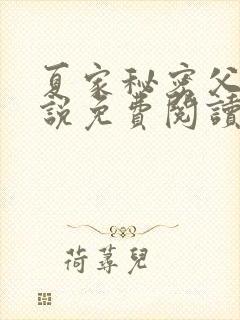 夏家秘密父
說免費閱讀
荷蕁兒